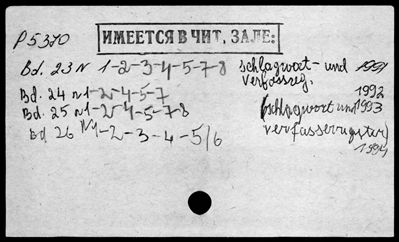 P5370 ИМЕЕТСЯ В ЧИТ. ЗАЛЕ:
Bd. 23 N 1-2-3-4-5-7-8 schlagwort- und 1991
verfasserg.
Bd. 24 N1-2-4-5-7 1992
Bd. 25 N1-2-4-5-7-8 (schlagwort und 1993
Bd 26 N1-2-3-4-5/6 verfasserregister)
1994